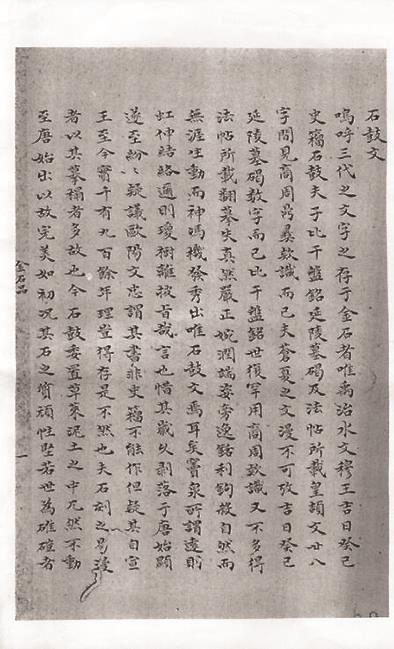 石鼓文
嗚呼三代之文字之存于金石者唯禹治水文穆王吉日癸巳
史籀石鼓夫子比干盤銘延陵墓碣及法帖所載皇頡文廿八
字間見商周鼎彝欵識而已夫蒼夏之文漫不可攷吉日癸巳
延陵墓碣數字而已比干盤銘世復罕用商周欵識又不多得
法帖所載翻摹失真然嚴正婉潤端姿旁逸銛利鉤殺自然而
無涯生動而神馮機發秀出唯石鼓文焉耳矣竇泉所謂遠則
虹伸結絡邇則瓊樹離披旨哉言也惜其歲久剥落于唐始顯
遂至紛〻疑議歐陽文忠謂其書非史籀不能作但疑其自宣
王至今實千有九百餘年理豈得存是不然也夫石刻之易漫
者以其摹搨者多故也今石鼓委置草萊泥土之中兀然不動
至唐始出以故完美如初况其石之質頑性堅若世為碓磑者
金石品
一